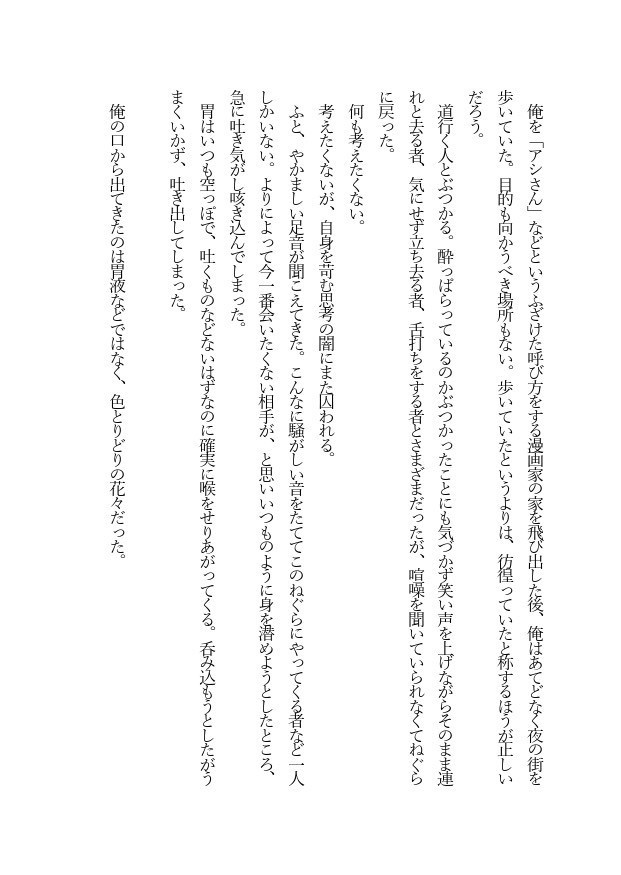 俺を「アシさん」などというふざけた呼び方をする漫画家の家を飛び出した後、俺はあてどなく夜の街を
歩いていた。目的も向かうべき場所もない。歩いていたというよりは、彷徨っていたと称するほうが正しい
だろう。
　道行く人とぶつかる。酔っぱらっているのかぶつかったことにも気づかず笑い声を上げながらそのまま連
れと去る者、気にせず立ち去る者、舌打ちをする者とさまざまだったが、喧噪を聞いていられなくてねぐら
に戻った。
　何も考えたくない。
　考えたくないが、自身を苛む思考の闇にまた囚われる。
　ふと、やかましい足音が聞こえてきた。こんなに騒がしい音をたててこのねぐらにやってくる者など一人
しかいない。よりによって今一番会いたくない相手が、と思いいつものように身を潜めようとしたところ、
急に吐き気がし咳き込んでしまった。
　胃はいつも空っぽで、吐くものなどないはずなのに確実に喉をせりあがってくる。呑み込もうとしたがう
まくいかず、吐き出してしまった。
　俺の口から出てきたのは胃液などではなく、色とりどりの花々だった。